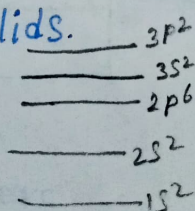 lids.
3p²
3s²
2p⁶
2s²
1s²